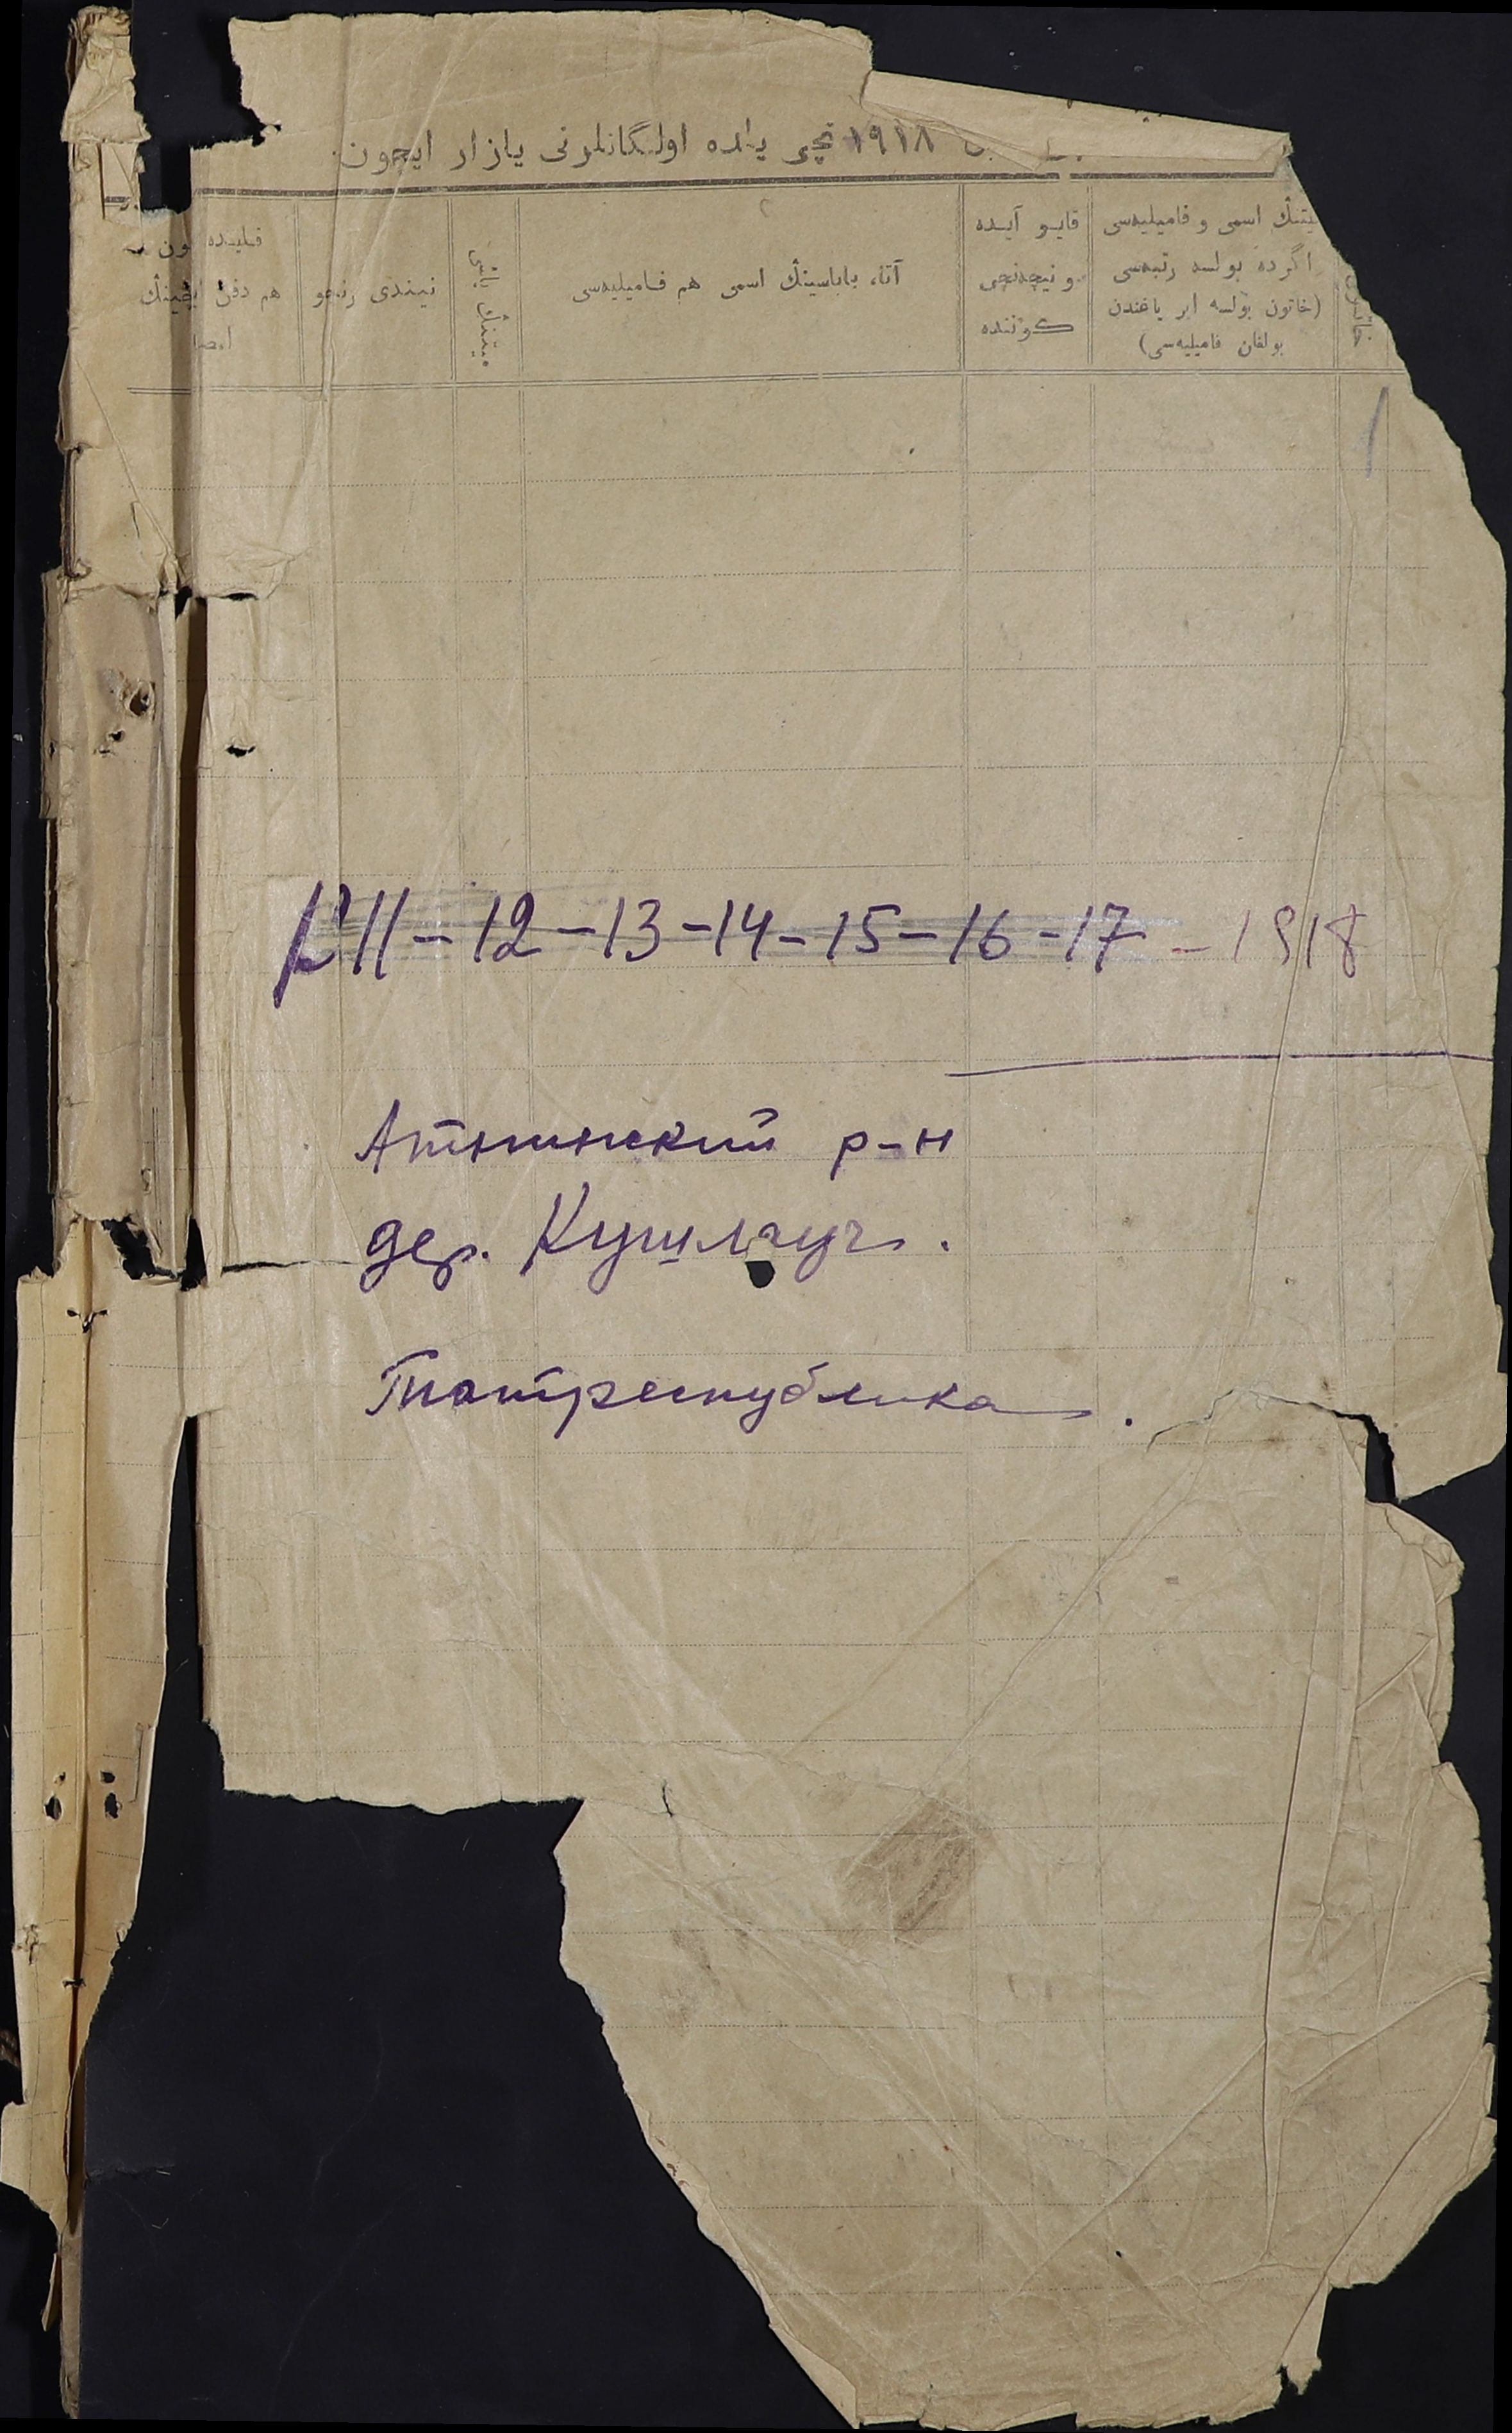 ١٩١٨ نچی یلده اولگانلرنی یازار ایچون.
اسمی و فامیلیه‌سی
اگرده بولسه رتبه‌سی
(خاتون بولسه ایر یاغندن
بولغان فامیلیه‌سی)
قایو آیده
و نیچه‌نچی
کوننده
آتا، باباسینڭ اسمی هم فامیلیه‌سی
میتنڭ یاشی
نیندی رنجو
هم دفن
11-12-13-14-15-16-17-1918
Атнинский р-н
дер. Кушлауч.
Татреспублика.